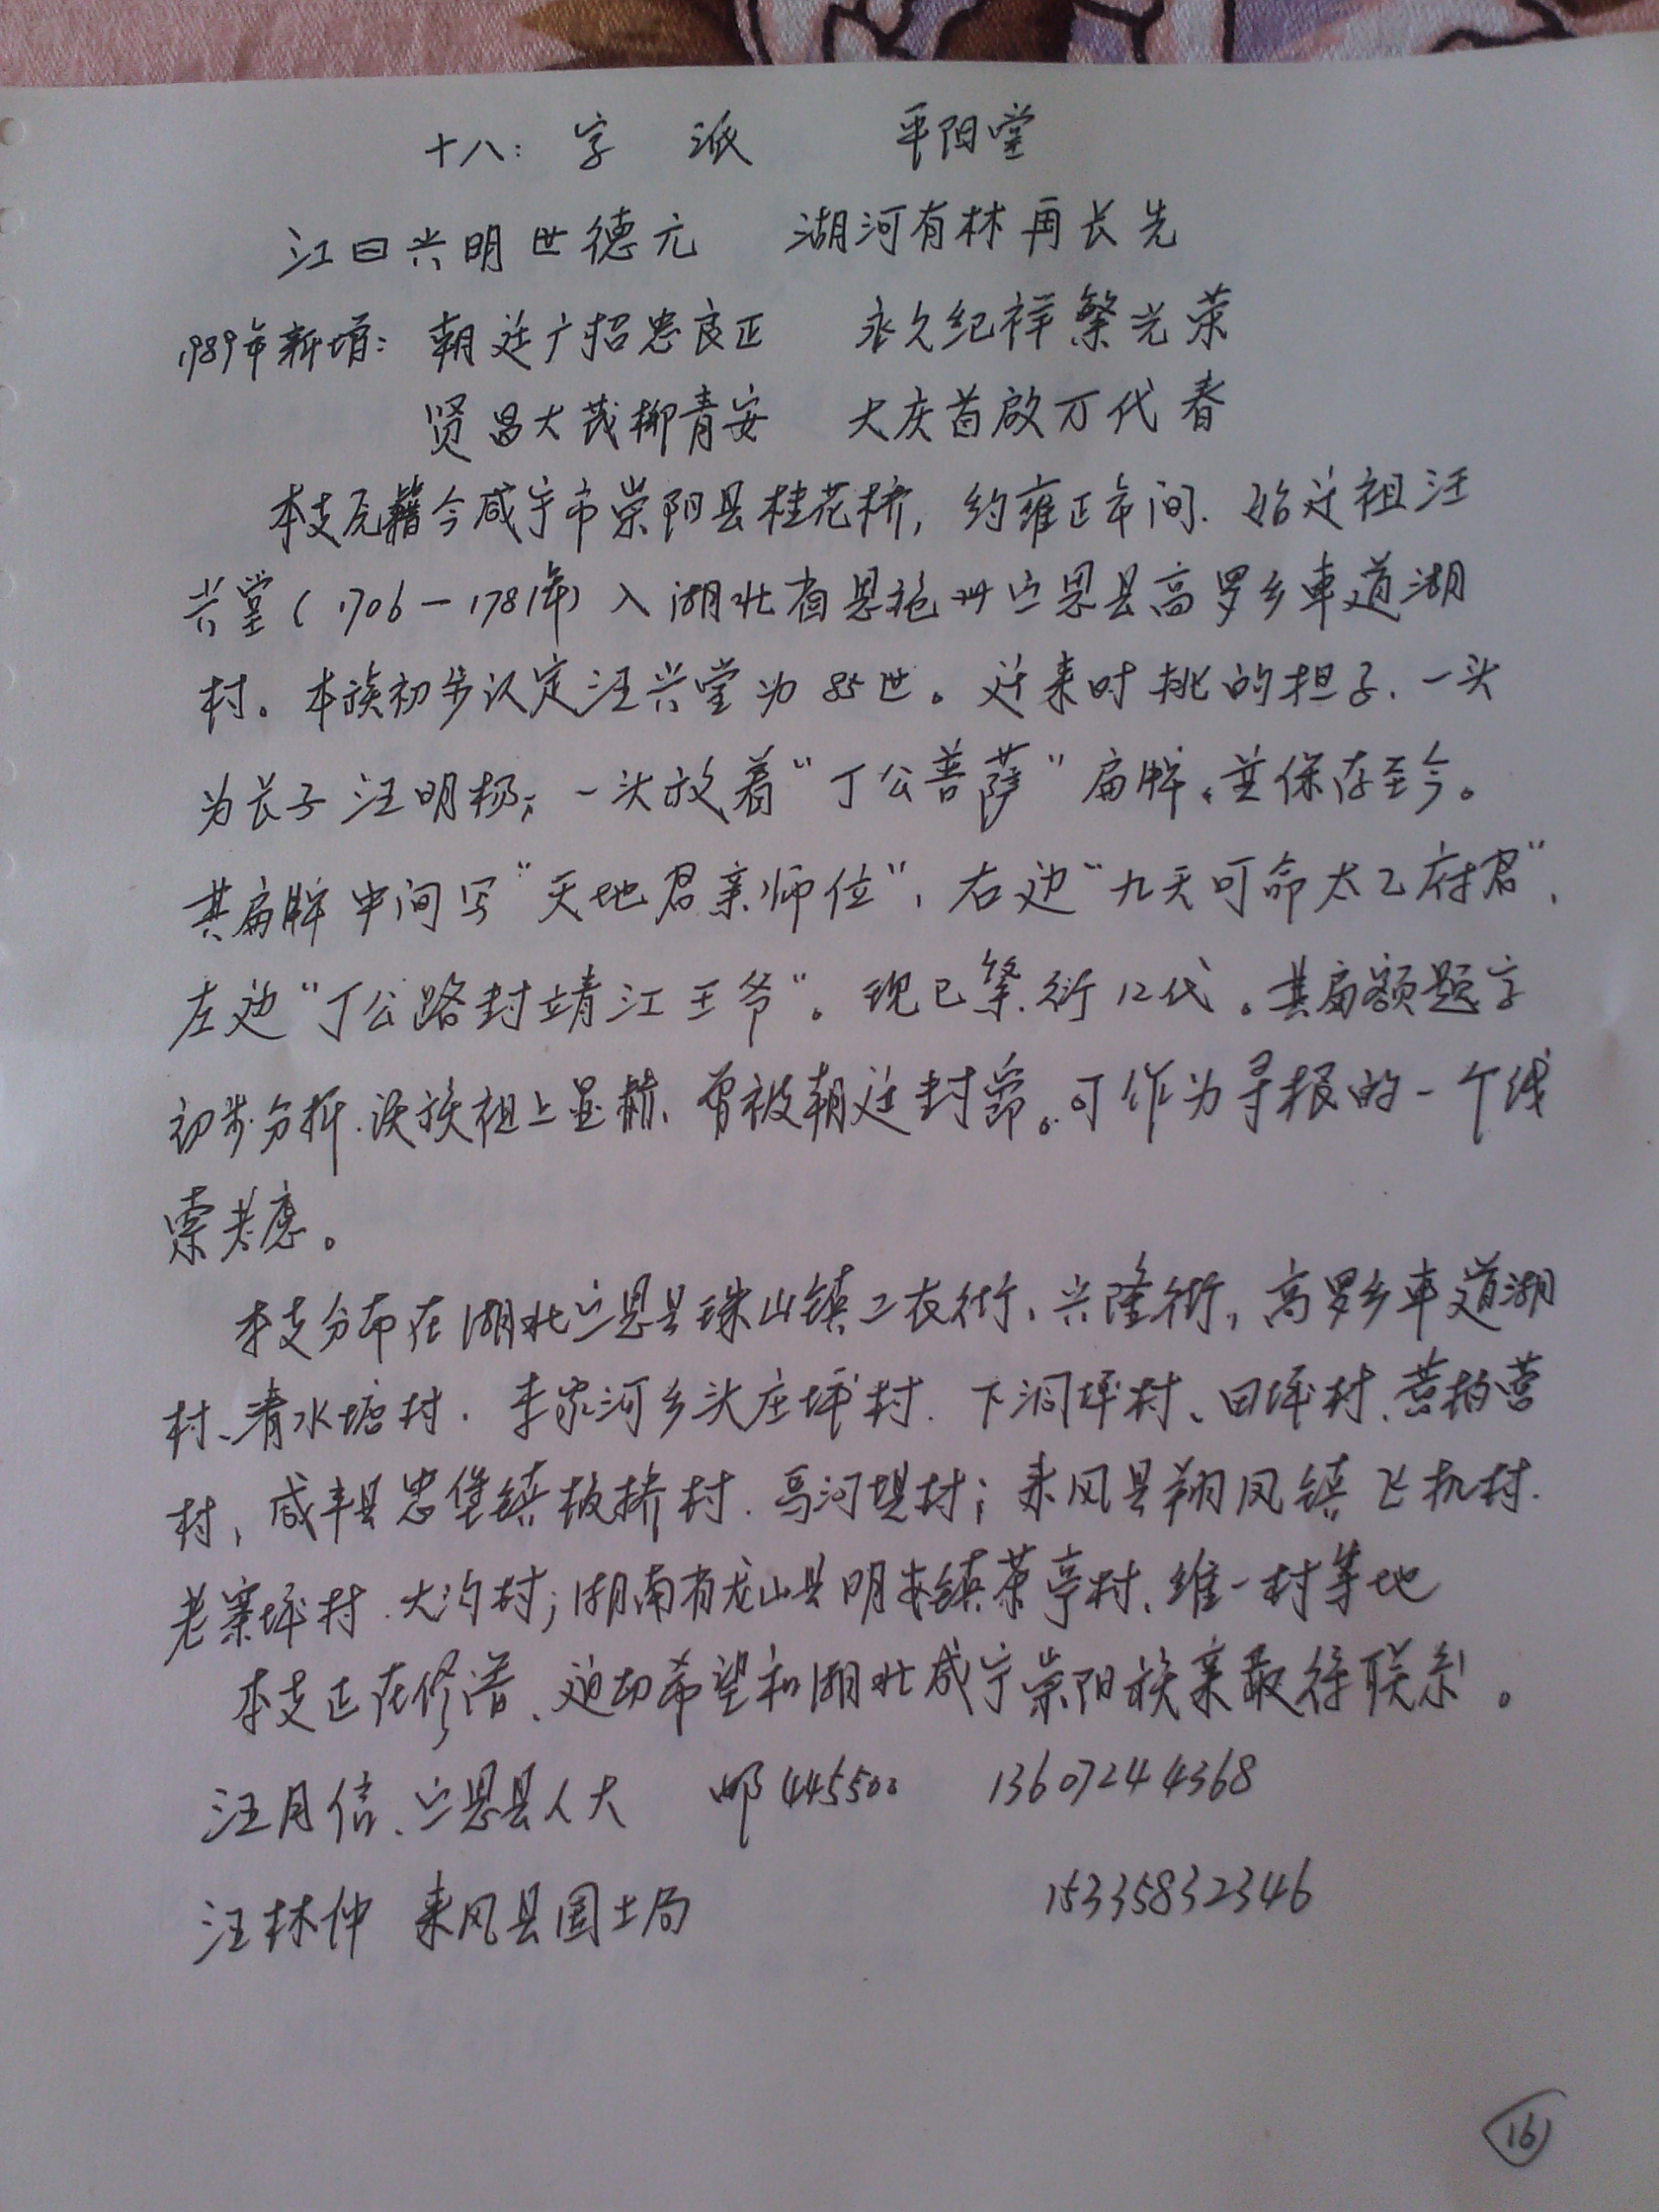 十八：字 派 平阳堂
江曰兴明世德元 湖河有林再长先
1989年新增：朝廷广招忠良正 永久纪祥繁光荣
贤昌大茂柳青安 大庆首啟万代春
本支原籍今咸宁市崇阳县桂花桥，约雍正年间、始迁祖汪
兴堂（1706—1781年）入湖北省恩施州宣恩县高罗乡車道湖
村。本族初步认定汪兴堂为85世。迁来时挑的担子、一头
为长子汪明杨；一头放着“丁公菩萨”扁牌、並保存至今。
其扁牌中间写“天地君亲师位”，右边“九天可命太乙府君”、
左边“丁公路封靖江王爷”。现已繁衍12代。其扁额题字
初步分析、该族祖上显赫、曾被朝廷封爵。可作为寻根的一个线
索考虑。
本支分布在湖北宣恩县珠山镇工农街、兴隆街，高罗乡車道湖
村、清水塘村、李家河乡头庄坪村、下洞坪村、田坪村、营
村，咸丰县忠堡镇板桥村、马河堤村；来风县翔凤镇飞机村、
老寨坪村、大沟村；湖南省龙山县明本镇茶亭村、维一村等地
本支正在修谱、迫切希望和湖北咸宁崇阳族亲取得联系。
汪月信、宣恩县人大 邮445500 13607244368
汪林仲 来风县国土局 15335832346
16